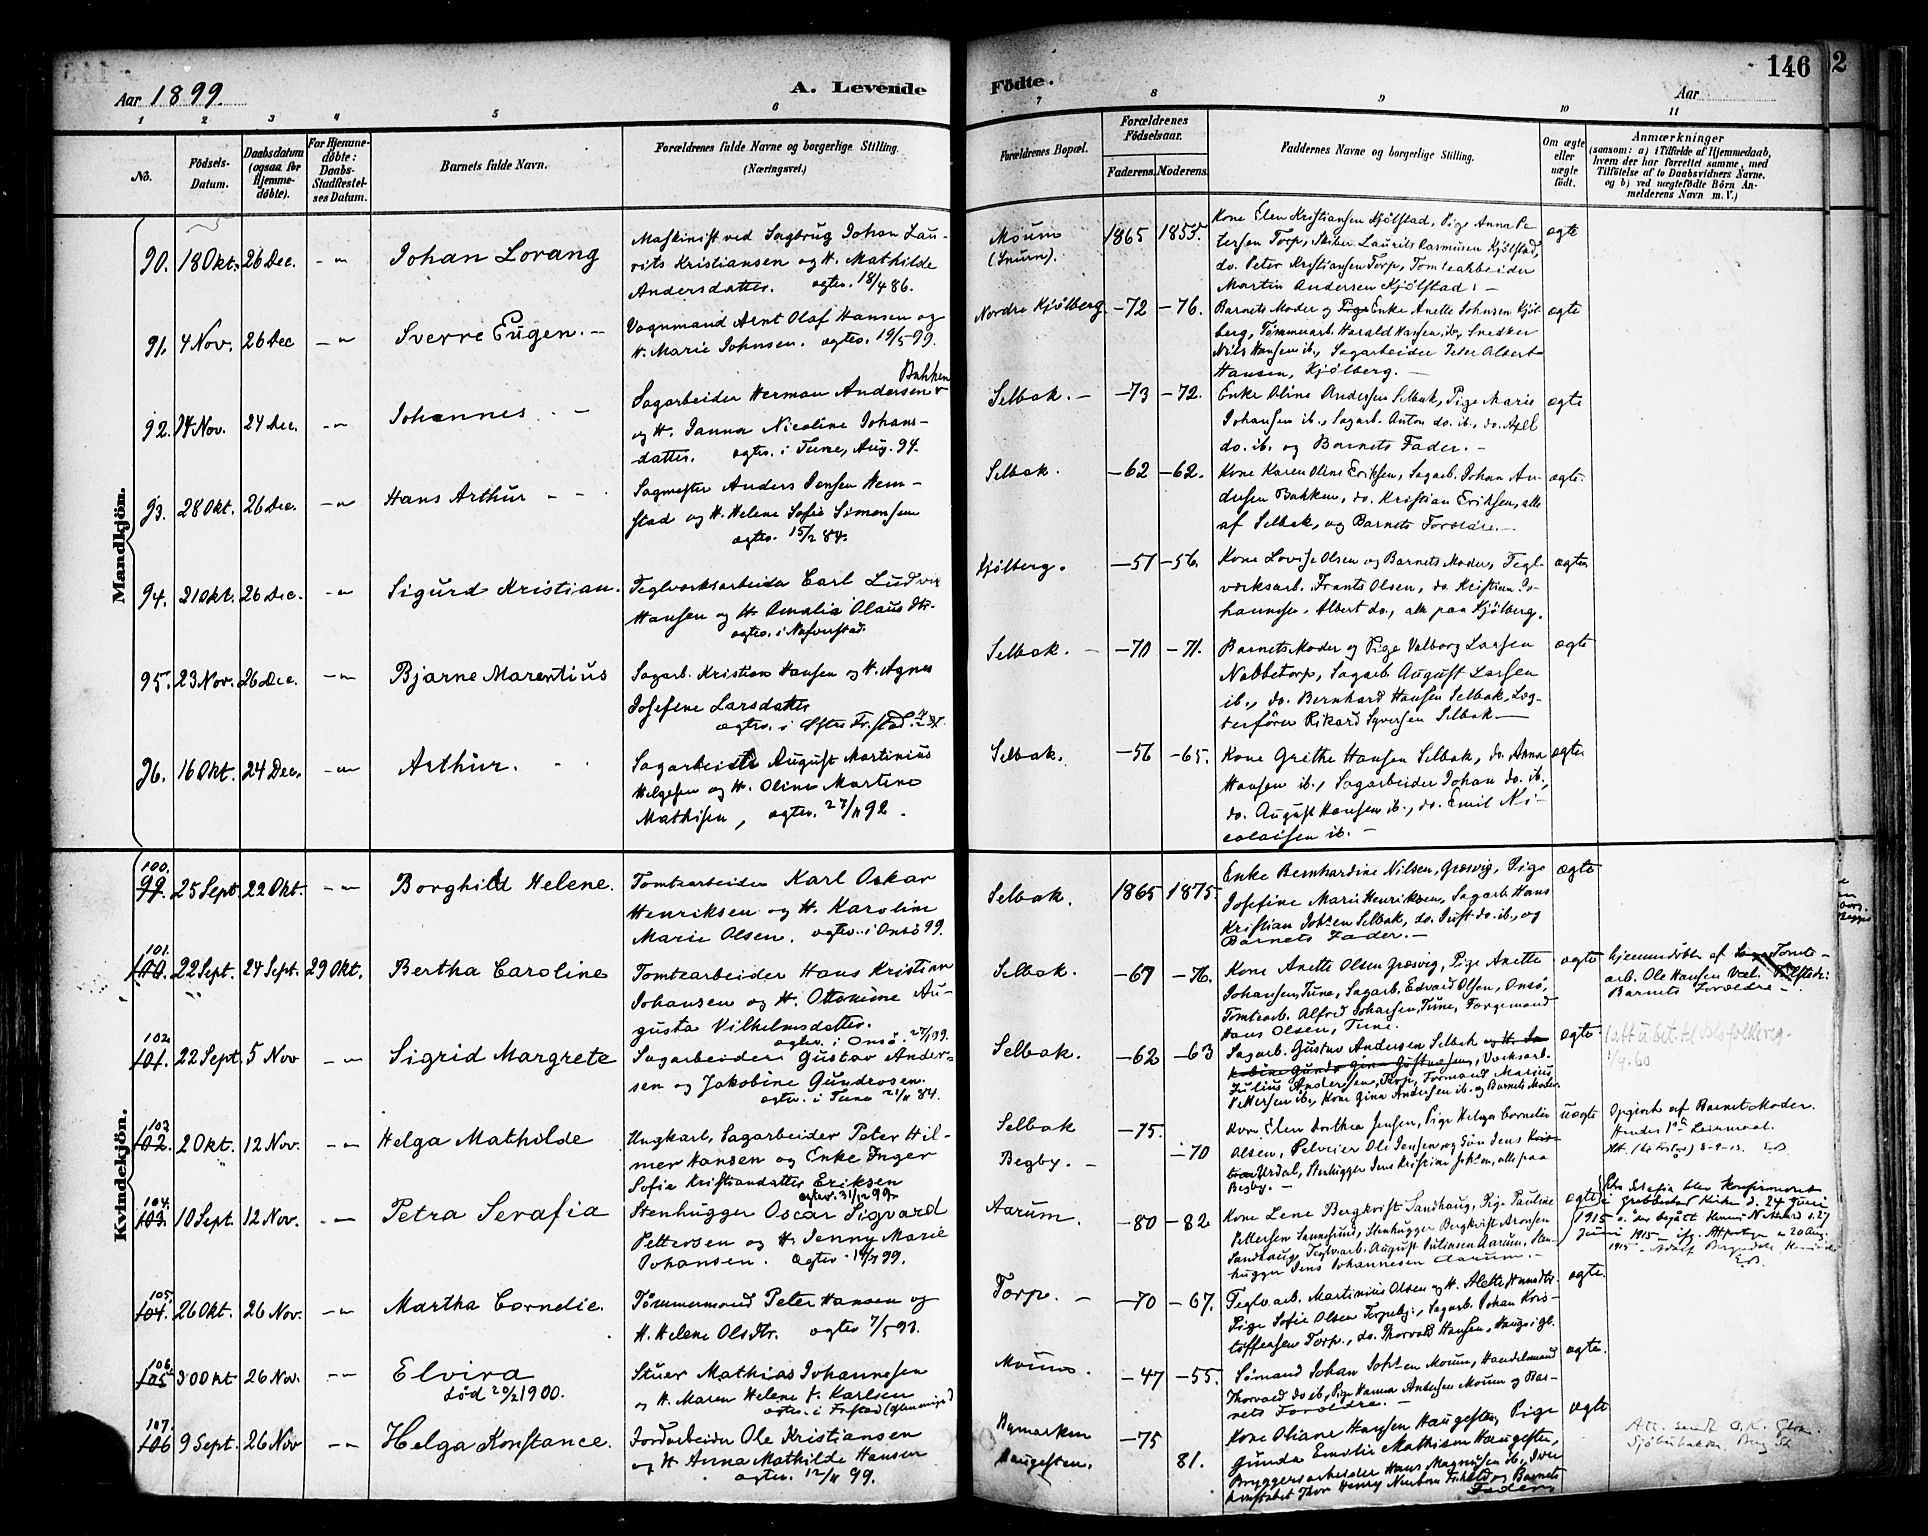 Aar 1899.
A. Levende
Födte.
Aar
146
2
1
2
3
4
5
6
7
8
9
10
11
No.
Födsels-
Datum.
Daabsdatum
(ogsaa for
Hjemme-
döbte).
For Hjemme-
döbte:
Daabs-
Stadfæstel-
ses Datum.
Barnets fulde Navn.
Forældrenes fulde Navne og borgerlige Stilling.
(Næringsvei.)
Forældrenes Bopæl.
Forældrenes
Födselsaar.
Faderens.
Moderens.
Faddernes Navne og borgerlige Stilling.
Om ægte
eller
uægte
födt.
Anmærkninger
(saasom: a) i Tilfælde af Hjemmedaab,
hvem der har forrettet samme, med
Tilföielse af to Daabsvidners Navne,
og b) ved uægtefödte Börn An-
melderens Navn m. V.)
Mandkjön.
90. 18 Okt. 26 Dec. - " Johan Lorang
Maskinist ved Sagbrug Johan Lau-
rits Kristiansen og H. Mathilde
Andersdatter. ægtev. 18/4 86.
Moum
(Snurn).
1865 1855.
Kone Elen Kristiansen Kjölstad, Pige Anna Pe-
tersen Torp, Skiber. Laurits Rasmusen Kjölstad,
do. Peter Kristiansen Torp, Tomtearbeider
Martin Andersen Kjölstad. -
ægte
91. 4 Nov. 26 Dec - " Sverre Eugen. -
Vognmand Arnt Olaf Hansen og
H. Marie Johnsen. ægtev. 19/5 99.
Nordre Kjölberg
-72 -76.
Barnets Moder og Enke Anette Johnsen Kjöl-
berg, Tömmerarb. Harald Hansen, ib., Snedker
Nils Hansen ib., Sagarbeider Peter Albert
Hansen, Kjölberg. -
ægte
92. 14 Nov. 24 Dec. - " Johannes. -
Bakken
Sagarbeider Herman Andersen
og H. Janna Nicoline Johans-
datter. ægtev. i Tune, Aug. 94.
Selbak. -
-73 -72.
Enke Oline Andersen Selbak, Pige Marie
Johansen ib., Sagarb. Anton do. ib., do. Axel
do. ib. og Barnets Fader. -
ægte
93. 28 Okt. 26 Dec. - " Hans Arthur - -
Sagmester Anders Jensen Hem-
stad og H. Helene Sofie Simensen
ægtev. 15/2 84.
Selbak.
-62 -62.
Kone Karen Oline Eriksen, Sagarb. Johan An-
dersen Bakken, do. Kristian Eriksen, alle
af Selbak, og Barnets Forældre. -
ægte.
94. 21 Okt. 26 Dec. - " Sigurd Kristian.
Teglverksarbeider Carl Ludvig
Hansen og H. Amalia Olausdtr.
ægtev. i Nafverstad.
Kjölberg.
-51 -56.
Kone Lovise Olsen og Barnets Moder, Tegl-
verksarb. Frants Olsen, do. Kristian Jo-
hannesen, Albert do., alle paa Kjölberg.
ægte
95. 23 Nov. 26 Dec. - " Bjarne Marentius
Sagarb. Kristian Hansen og H. Agnes
Josefine Larsdatter
ægtev. i Östre Fr.stad.
Selbak. -
-70 -71.
Barnets Moder og Pige Valborg Larsen
Nabbetorp, Sagarb. August Larsen
ib., do. Bernhard Hansen Selbak, Log-
terförer Rikard Syversen Selbak -
ægte
96. 16 Okt. 24 Dec. - " Arthur. - -
Sagarbeider August Martinius
Helgesen og H. Oline Martine
Mathisen, ægtev. 27/11 92.
Selbak.
-56 -65.
Kone Grithe Hansen Selbak, do. Anna
Hansen ib., Sagarbeider Johan do. ib.,
do. August Hansen ib., do. Emil Ni-
colaisen ib. -
ægte
Kvindekjön.
100.
99. 25 Sept. 22 Okt. - " Borghild Helene.
Tomtearbeider Karl Oskar
Henriksen og H. Karoline
Marie Olsen. ægtev. i Onsö 99.
Selbak.
1865 1875.
Enke Bernhardine Nilsen, Græsvig, Pige
Josefine Marie Henriksen, Sagarb. Hans
Kristian Johsen Selbak, do. Just do. ib., og
Barnets Fader. -
ægte
101.
100. 22 Sept. 24 Sept. 29 Okt. Bertha Caroline
Tomtearbeider Hans Kristian
Johansen og H. Ottomine Au-
gusta Vilhelmsdatter.
ægtev. i Onsö. 27/1 99.
Selbak.
-67 -76.
Kone Anette Olsen Græsvig, Pige Anette
Johansen, Tune, Sagarb. Edvard Olsen, Onsö,
Tomtearb. Alfred Johansen, Tune, Forgemand
Hans Olsen, Tune.
ægte
hjemmedöbt af Tomte-
arb. Ole Hansen
Barnets Forældre. -
102
101. 22 Sept. 5 Nov - " Sigrid Margrete
Sagarbeider Gustav Ander-
sen og Jakobine Gundersen.
ægtev. i Tune 21/11 84.
Selbak.
-62 -63
Sagarb. Gustav Andersen Selbak
Gina Gustavsen, Verksarb.
Julius Andersen, Torp, Formand Marius
Pettersen ib., Kone Gina Andersen ib. og Barnets Moder.
ægte
1/9.60
103
102. 2 Okt. 12 Nov. - " Helga Mathilde
Ungkarl, Sagarbeider Peter Hil-
mer Hansen og Enke Inger
Sofie Kristiansdatter Eriksen
ægtev. 31/12 99.
Selbak
Begby. -
-75.
-70
Elen Dorthea Jensen, Pige Helga Cornelia
Olsen, Ole Jensen og Sön Jens
Årdal, Stenhugger Jens Kristian Johsen, alle paa
Begby. -
uægte
Opgivet af Barnets Moder.
Hendes 1ste Leiermaal.
104.
103. 10 Sept. 12 Nov. - " Petra Serafia
Stenhugger Oscar Sigvard
Pettersen og H. Jenny Marie
Johansen. Ægtev. 14/7 99.
Aarum.
-80 -82
Kone Lene Bergkvist Sandhaug, Pige Pauline
Pettersen Sannesund, Stenhugger Bergkvist Aronsen
Sandhaug, Teglvarb. August Julinsen Aarum, Sten-
hugger Jens Johannesen Aarum. -
ægte
Petra Serafia blev konfirmeret
i Grebbestad Kirke d. 24 Juni
1915
105.
104. 26 Okt. 26 Nov. - " Martha Cornelie.
Tömmermand Peter Hansen og
H. Helene Olsdtr. ægtev 7/5 93.
Torp. -
-70 -67.
Teglv.arb. Martinius Olsen og H. Alette Hansdtr.
Pige Sofie Olsen Torpeby, Sagarb. Johan Kris-
toffersen Torp, do. Thorvald Hansen, Haugsigl.
ægte.
106.
105 30 Okt 26 Nov. - " Elvira
död 20/2 1900.
Stuer Mathias Johannesen
og H. Maren Helene f. Karlsen
ægtev. i Frstad (Glemminge)
Moum.
-47 -55.
Sömand Johan Johsen Moum, Handelsmand
Thorvald do ib., Pige Hanna Andersen Moum og Bar-
nets Forældre. -
ægte.
107.
106 9 Sept. 26 Nov - " Helga Konstance.
Jordarbeider Ole Kristiansen
og H. Anna Mathilde Hansen
ægtev. 12/11 99.
Bymarken
Haugesten.
-75
81.
Kone Oliane Hansen Haugesten, Pige
Gunda Emilie Mathisen Haugesten,
Bryggeriarbeider Hans Magnusen ib., Iver
Thor Henry og Barnets
Fader.
ægte
Att. sendt O.K.